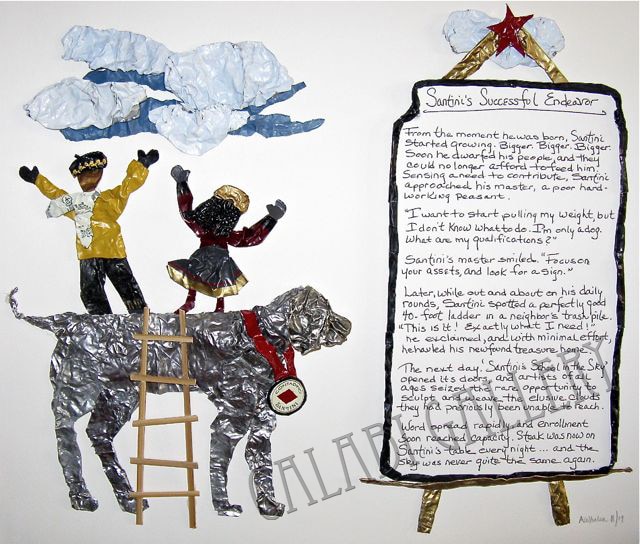 Santini's Successful Endeavor
From the moment he was born, Santini
started growing. Bigger. Bigger. Bigger.
Soon he dwarfed his people, and they
could no longer afford to feed him.
Sensing a need to contribute, Santini
approached his master, a poor hard-
working peasant.
"I want to start pulling my weight, but
I don't know what to do. I'm only a dog.
What are my qualifications?"
Santini's master smiled. "Focus on
your assets, and look for a sign."
Later, while out and about on his daily
rounds, Santini spotted a perfectly good
40-foot ladder in a neighbor's trash pile.
"This is it! Exactly what I need!"
he exclaimed, and with minimal effort,
he hauled his newfound treasure home.
The next day, Santini's School of the Sky
opened its doors, and artists of all
ages seized the rare opportunity to
sculpt and weave the elusive clouds
they had previously been unable to reach.
Word spread rapidly and enrollment
soon reached capacity. Steak was now on
Santini's table every night ... and the
sky was never quite the same again.
SANTINI
CALABI GALLERY